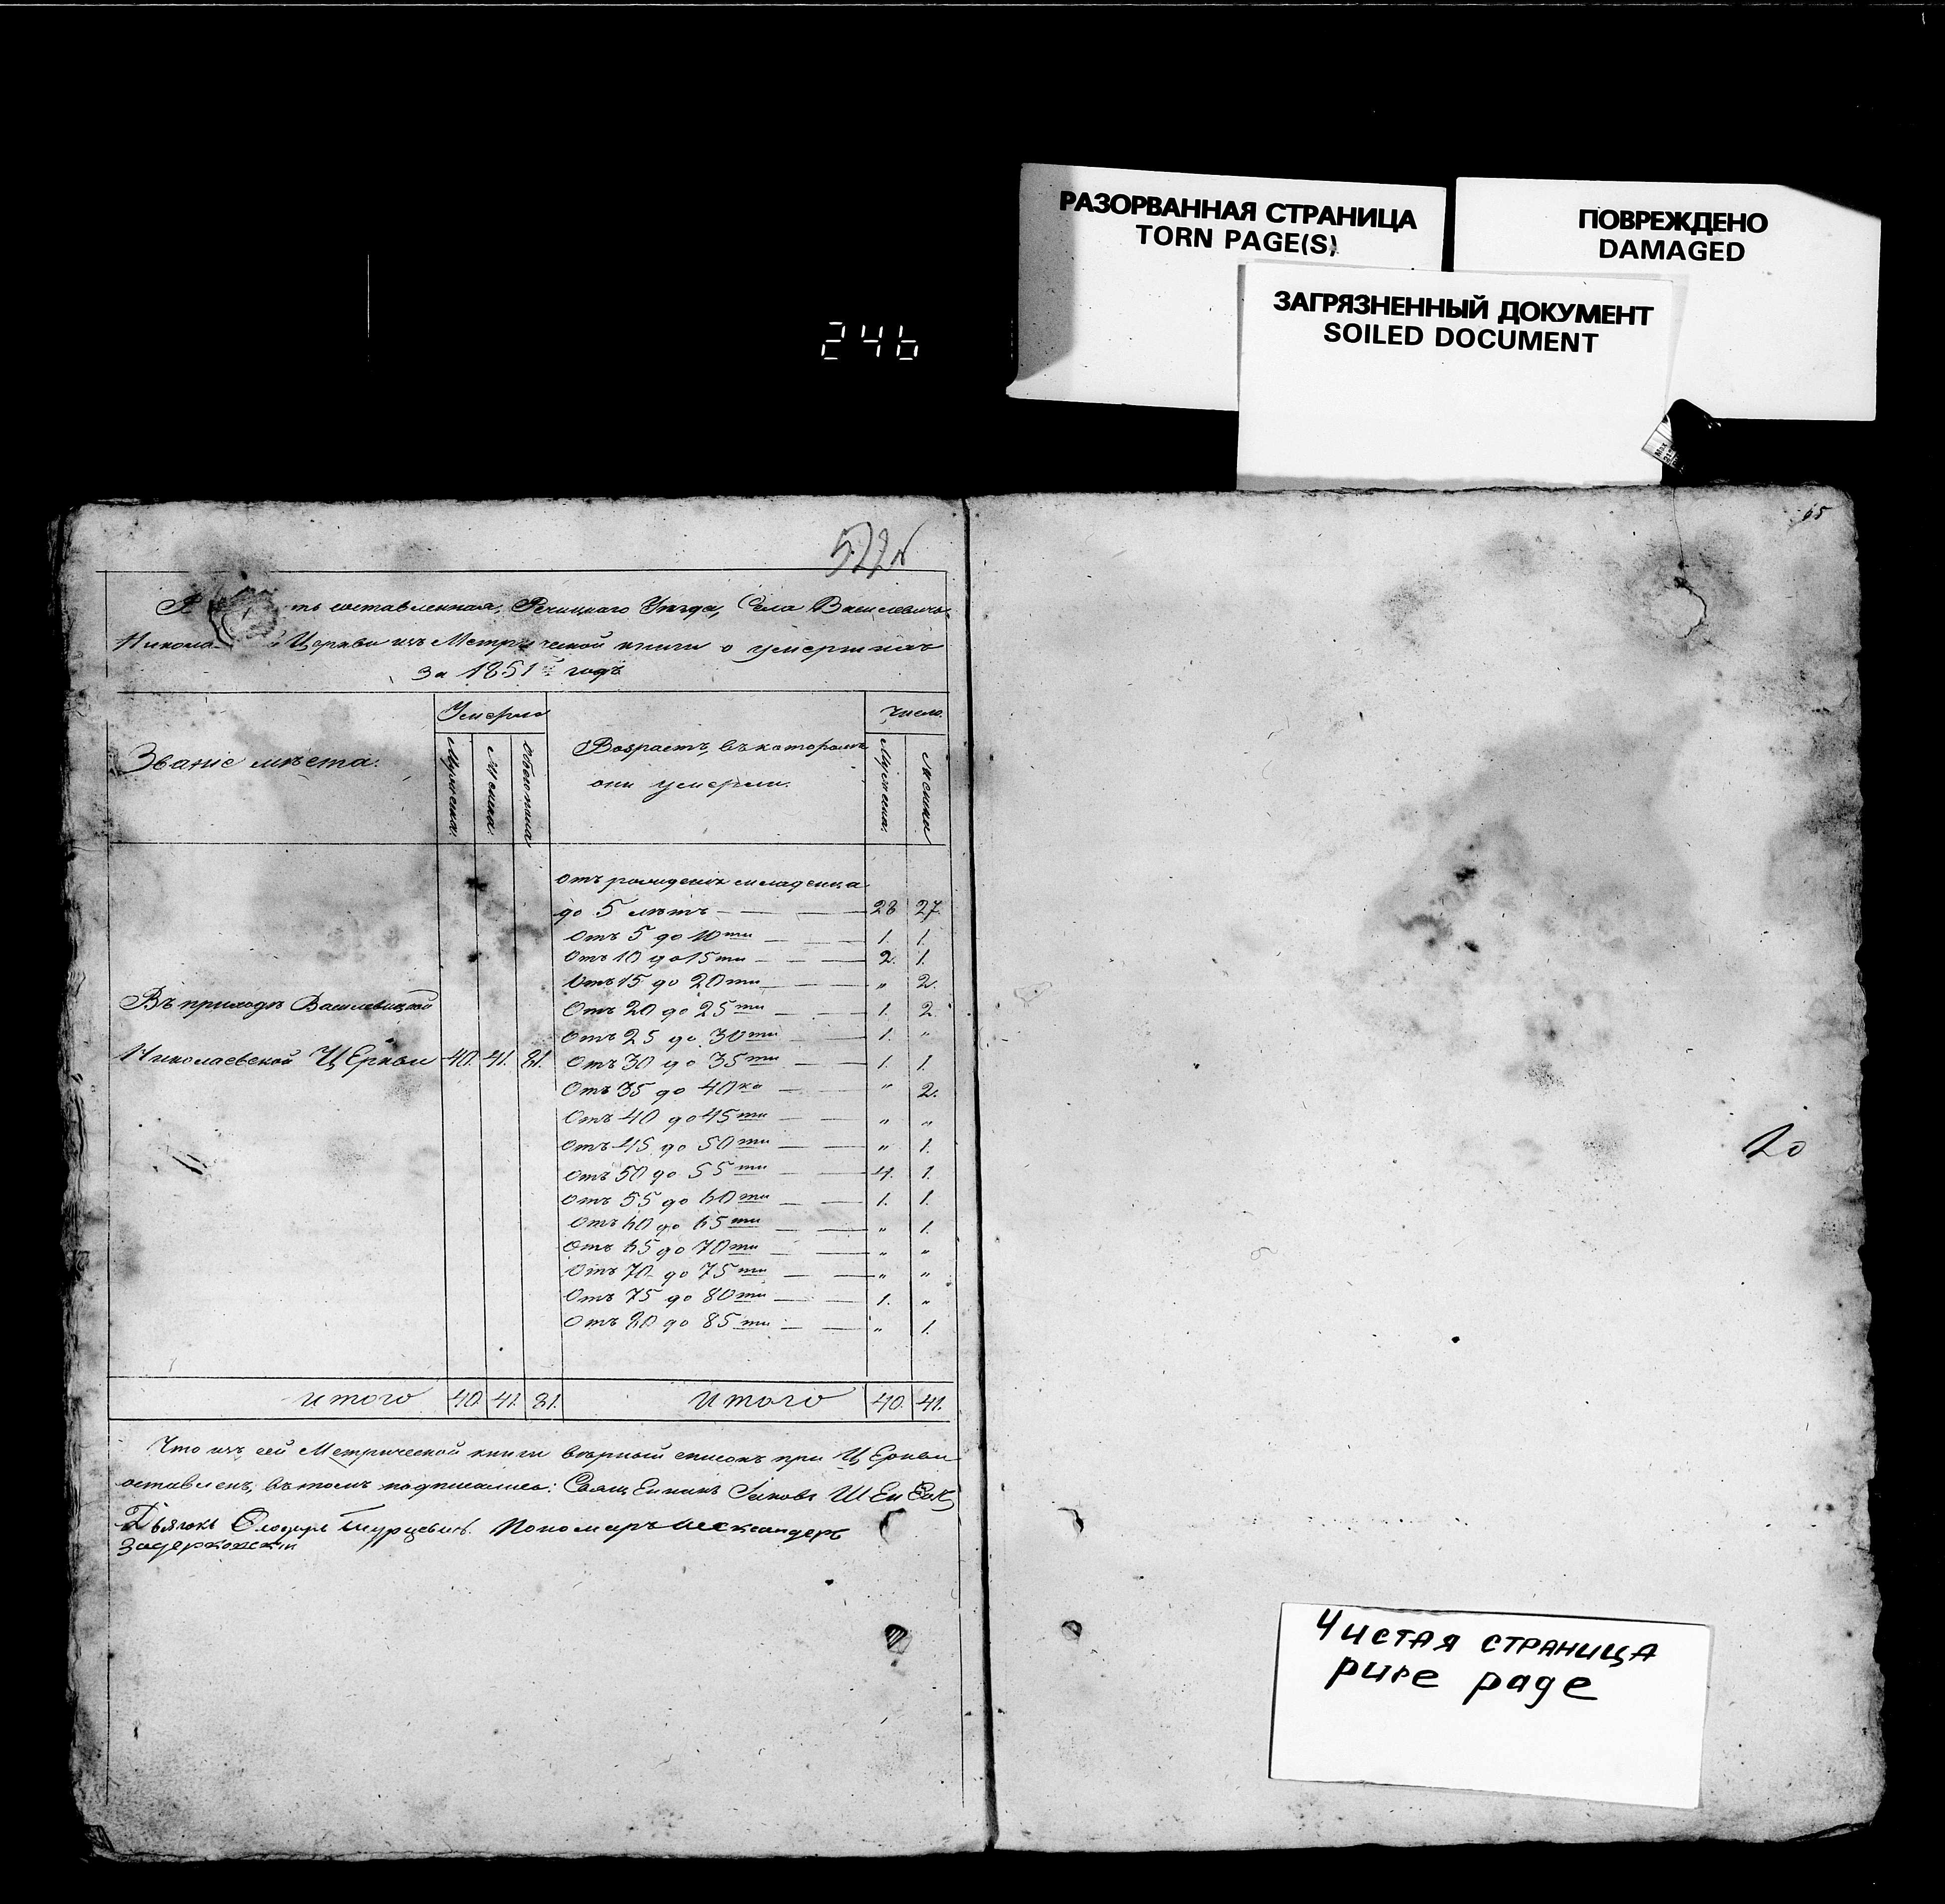 РАЗОРВАННАЯ СТРАНИЦА
TORN PAGE(S)
ПОВРЕЖДЕНО
DAMAGED
ЗАГРЯЗНЕННЫЙ ДОКУМЕНТ
SOILED DOCUMENT
246
65
составленная, Речицкаго Уезда, Села Василевичъ
Никола Церкви изъ Метрической книги о умершихъ
за 1851й годъ
Званіе мѣста.
Умерло
Мужеска.
Женска.
Обоего пола
Возрастъ, въ которомъ
они умерли.
Число.
Мужеска.
Женска
отъ рожденія младенца
до 5 лѣтъ — — — 28 27.
Отъ 5 до 10ти — — 1. 1.
Отъ 10 до 15ти — — 2. 1.
Отъ 15 до 20ти — — " 2.
Въ приходѣ Василевицкой
Отъ 20 до 25ти — — 1. 2.
Отъ 25 до 30ти — — 1. "
Николаевской Церкви 40. 41. 81. Отъ 30 до 35ти — — 1. 1.
Отъ 35 до 40ка — — " 2.
Отъ 40 до 45ти — — " "
Отъ 45 до 50ти — — " 1.
Отъ 50 до 55ти — — 4. 1.
Отъ 55 до 60ти — — 1. 1.
Отъ 60 до 65ти — — " 1.
Отъ 65 до 70ти — — " "
Отъ 70 до 75ти — — " "
Отъ 75 до 80ти — — 1. "
Отъ 80 до 85ти — — " 1.
Итого 40. 41. 81. Итого 40. 41.
Что изъ сей Метрической книги вѣрный списокъ при Церкви
оставленъ, въ томъ подписались: Священникъ Іаковъ
Дьячокъ Пономаръ Александеръ
Задерковскій
20
Чистая страница
pure page